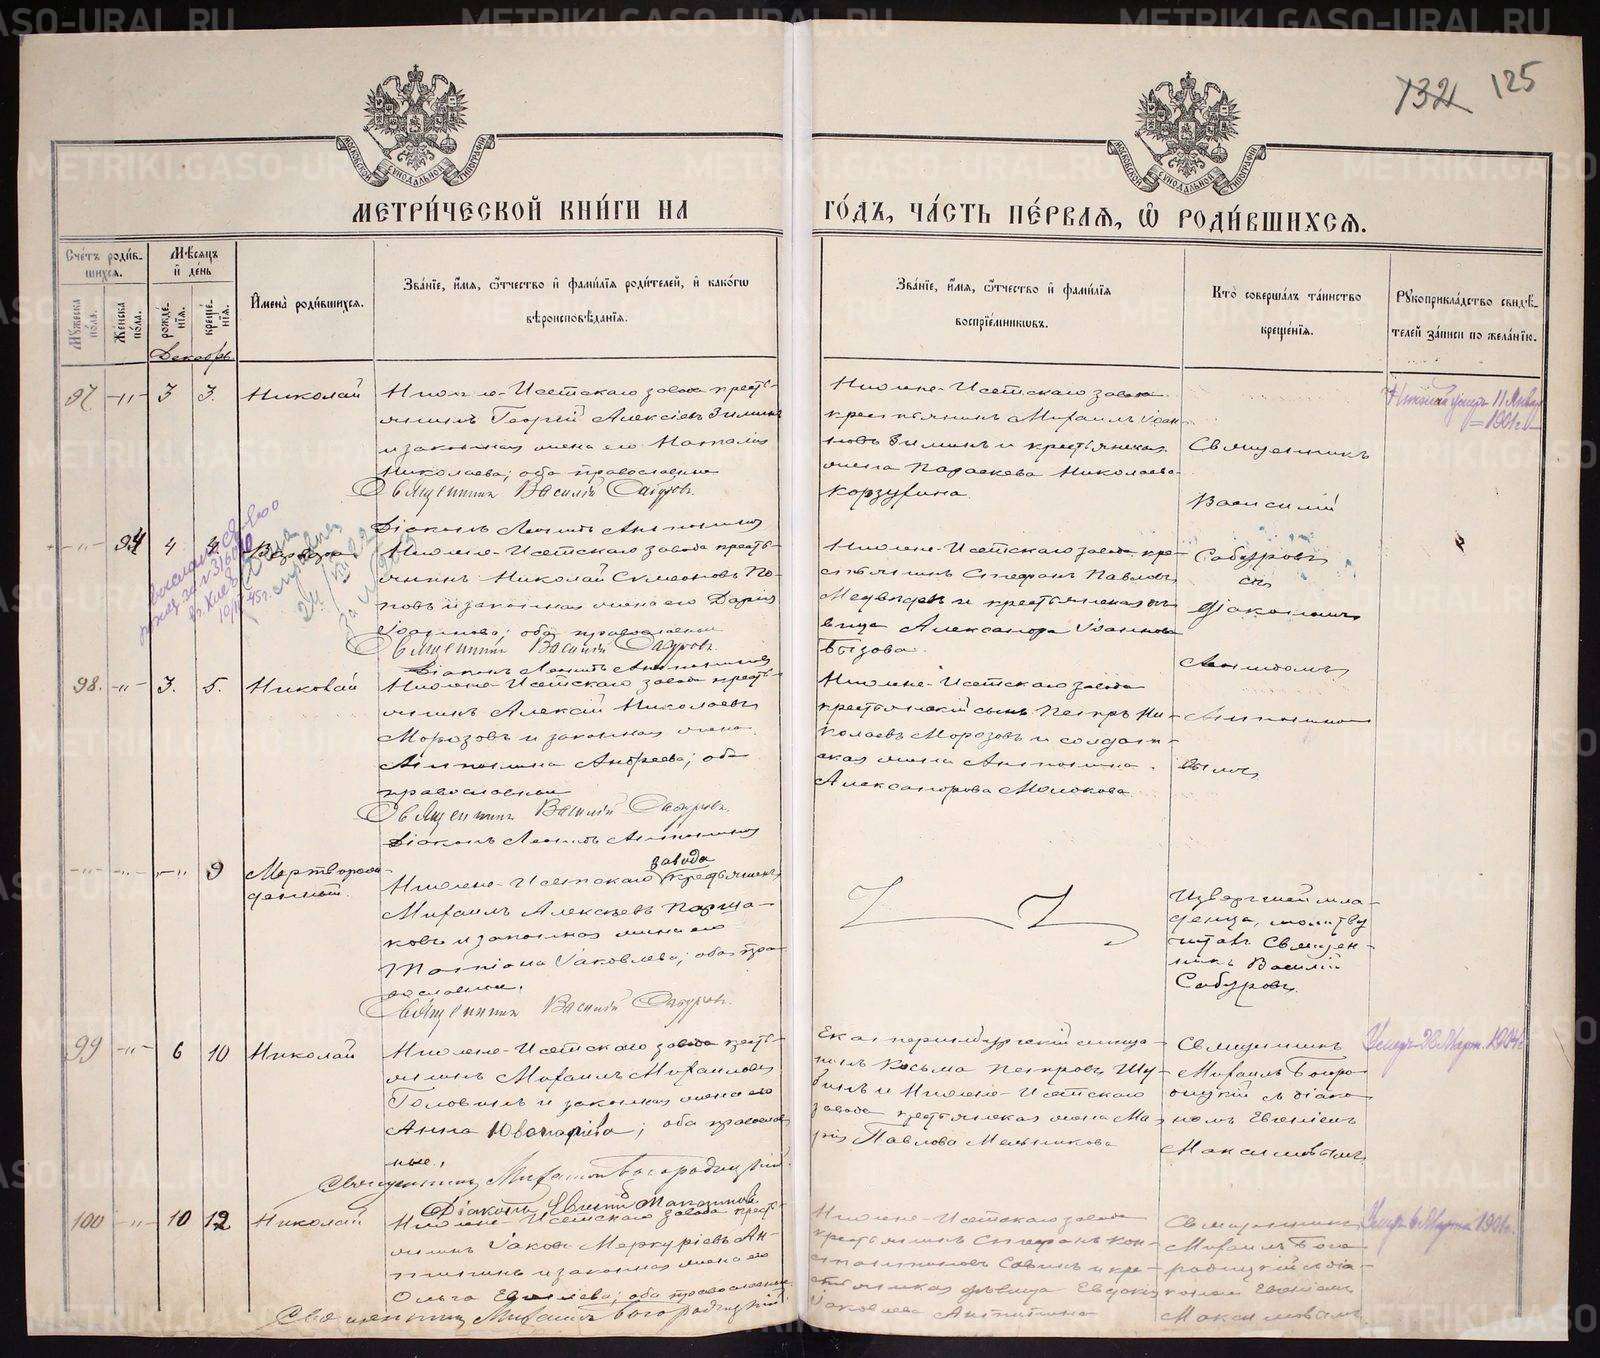 132 125
МОСКОВСКОЙ СѴНОДАЛЬНОЙ ТИПОГРАФІИ
МОСКОВСКОЙ СѴНОДАЛЬНОЙ ТИПОГРАФІИ
МЕТРИ́ЧЕСКОЙ КНИ́ГИ НА ГО́ДЪ, ЧА́СТЬ ПЕ́РВАЯ, Ѡ҆ РОДИ́ВШИХСЯ.
Сче́тъ роди́в-
шихся.
Му́жеска по́ла.
Же́нска по́ла.
Мѣ́сяцъ
и҆ де́нь
рожде́-
нїя.
креще́-
нїя.
И҆мена̀ роди́вшихся.
Зва́нїе, и҆́мя, ѻ҆́тчество и҆ фами́лїя роди́телей, и҆ како́гѡ
вѣроисповѣ́данїя.
Зва́нїе, и҆́мя, ѻ҆́тчество и҆ фами́лїя
воспрїе́мникѡвъ.
Кто̀ соверша́лъ та́инство
креще́нїя.
Рꙋкоприкла́дство свидѣ́-
телей за́писи по жела́нїю.
Декабрь
97. -"- 3 3. Николай
Нижне-Исетскаго завода кресть-
янинъ Георгій Алексіевъ Зиминъ
и законная жена его Наталія
Николаева; оба православные
Священникъ Василій Сабуровъ.
Діаконъ Леонидъ
Нижне-Исетскаго завода
крестьянинъ Михаилъ Іоан-
новъ Зиминъ и крестьянская
жена Параскева Николаева
Корзухина.
Священникъ
Василій
Сабуровъ
съ
Діакономъ
Леонидомъ
Николай умеръ 11 Январ
1901 г.
-"- 94 4 4. Варвара
Нижне-Исетскаго завода кресть-
янинъ Николай Симеоновъ По-
повъ и законная жена его Дарія
Іоаннова; оба православные
Священникъ Василій Сабуровъ.
Діаконъ Леонидъ
Нижне-Исетскаго завода кре-
стьянинъ Стефанъ Павловъ
Медвѣдевъ и крестьянская дѣ-
вица Александра Іоаннова
Бызова.
98. -"- 3. 5. Николай
Нижне-Исетскаго завода кресть-
янинъ Алексій Николаевъ
Морозовъ и законная жена
Антонина Андреева; оба
православные
Священникъ Василій Сабуровъ.
Діаконъ Леонидъ
Нижне-Исетскаго завода
крестьянскій сынъ Петръ Ни-
колаевъ Морозовъ и солдат-
ская жена Антонина
Александрова Молокова.
-"- -"- -"- 9 Мертворож-
денный.
завода
Нижне-Исетскаго крестьянинъ
Михаилъ Алексѣевъ Парша-
ковъ и законная жена его
Татіана Іаковлева; оба пра-
вославные.
Священникъ Василій Сабуровъ.
Священ-
никъ Василій
Сабуровъ.
99 -"- 6 10 Николай
Нижне-Исетскаго завода кресть-
янинъ Михаилъ Михаиловъ
Головинъ и законная жена его
Анна; оба православ-
ные.
Священникъ Михаилъ Богородицкій.
Діаконъ Евгеній
Екатеринбургскій мѣща-
нинъ Косьма Петровъ Шу-
бинъ и Нижне-Исетскаго
завода крестьянская жена Ма-
рія Павлова Мельникова
Священникъ
Михаилъ Богоро-
дицкій съ діако-
номъ Евгеніемъ
Максимовымъ.
Умеръ 28 Март. 1904 г.
100 -"- 10 12 Николай
Нижне-Исетскаго завода кресть-
янинъ Іаковъ Меркуріевъ Ан-
типинъ и законная жена его
Ольга; оба православные.
Священникъ Михаилъ Богородицкій.
Нижне-Исетскаго завода
крестьянинъ Стефанъ Кон-
стантиновъ Савинъ и кре-
стьянская дѣвица Евдокія
Іаковлева Антипина
Священникъ
Михаилъ Бого-
родицкій съ діа-
кономъ Евгеніемъ
Максимовымъ.
Умеръ 6 Марта 1901 г.
METRIKI.GASO-URAL.RU